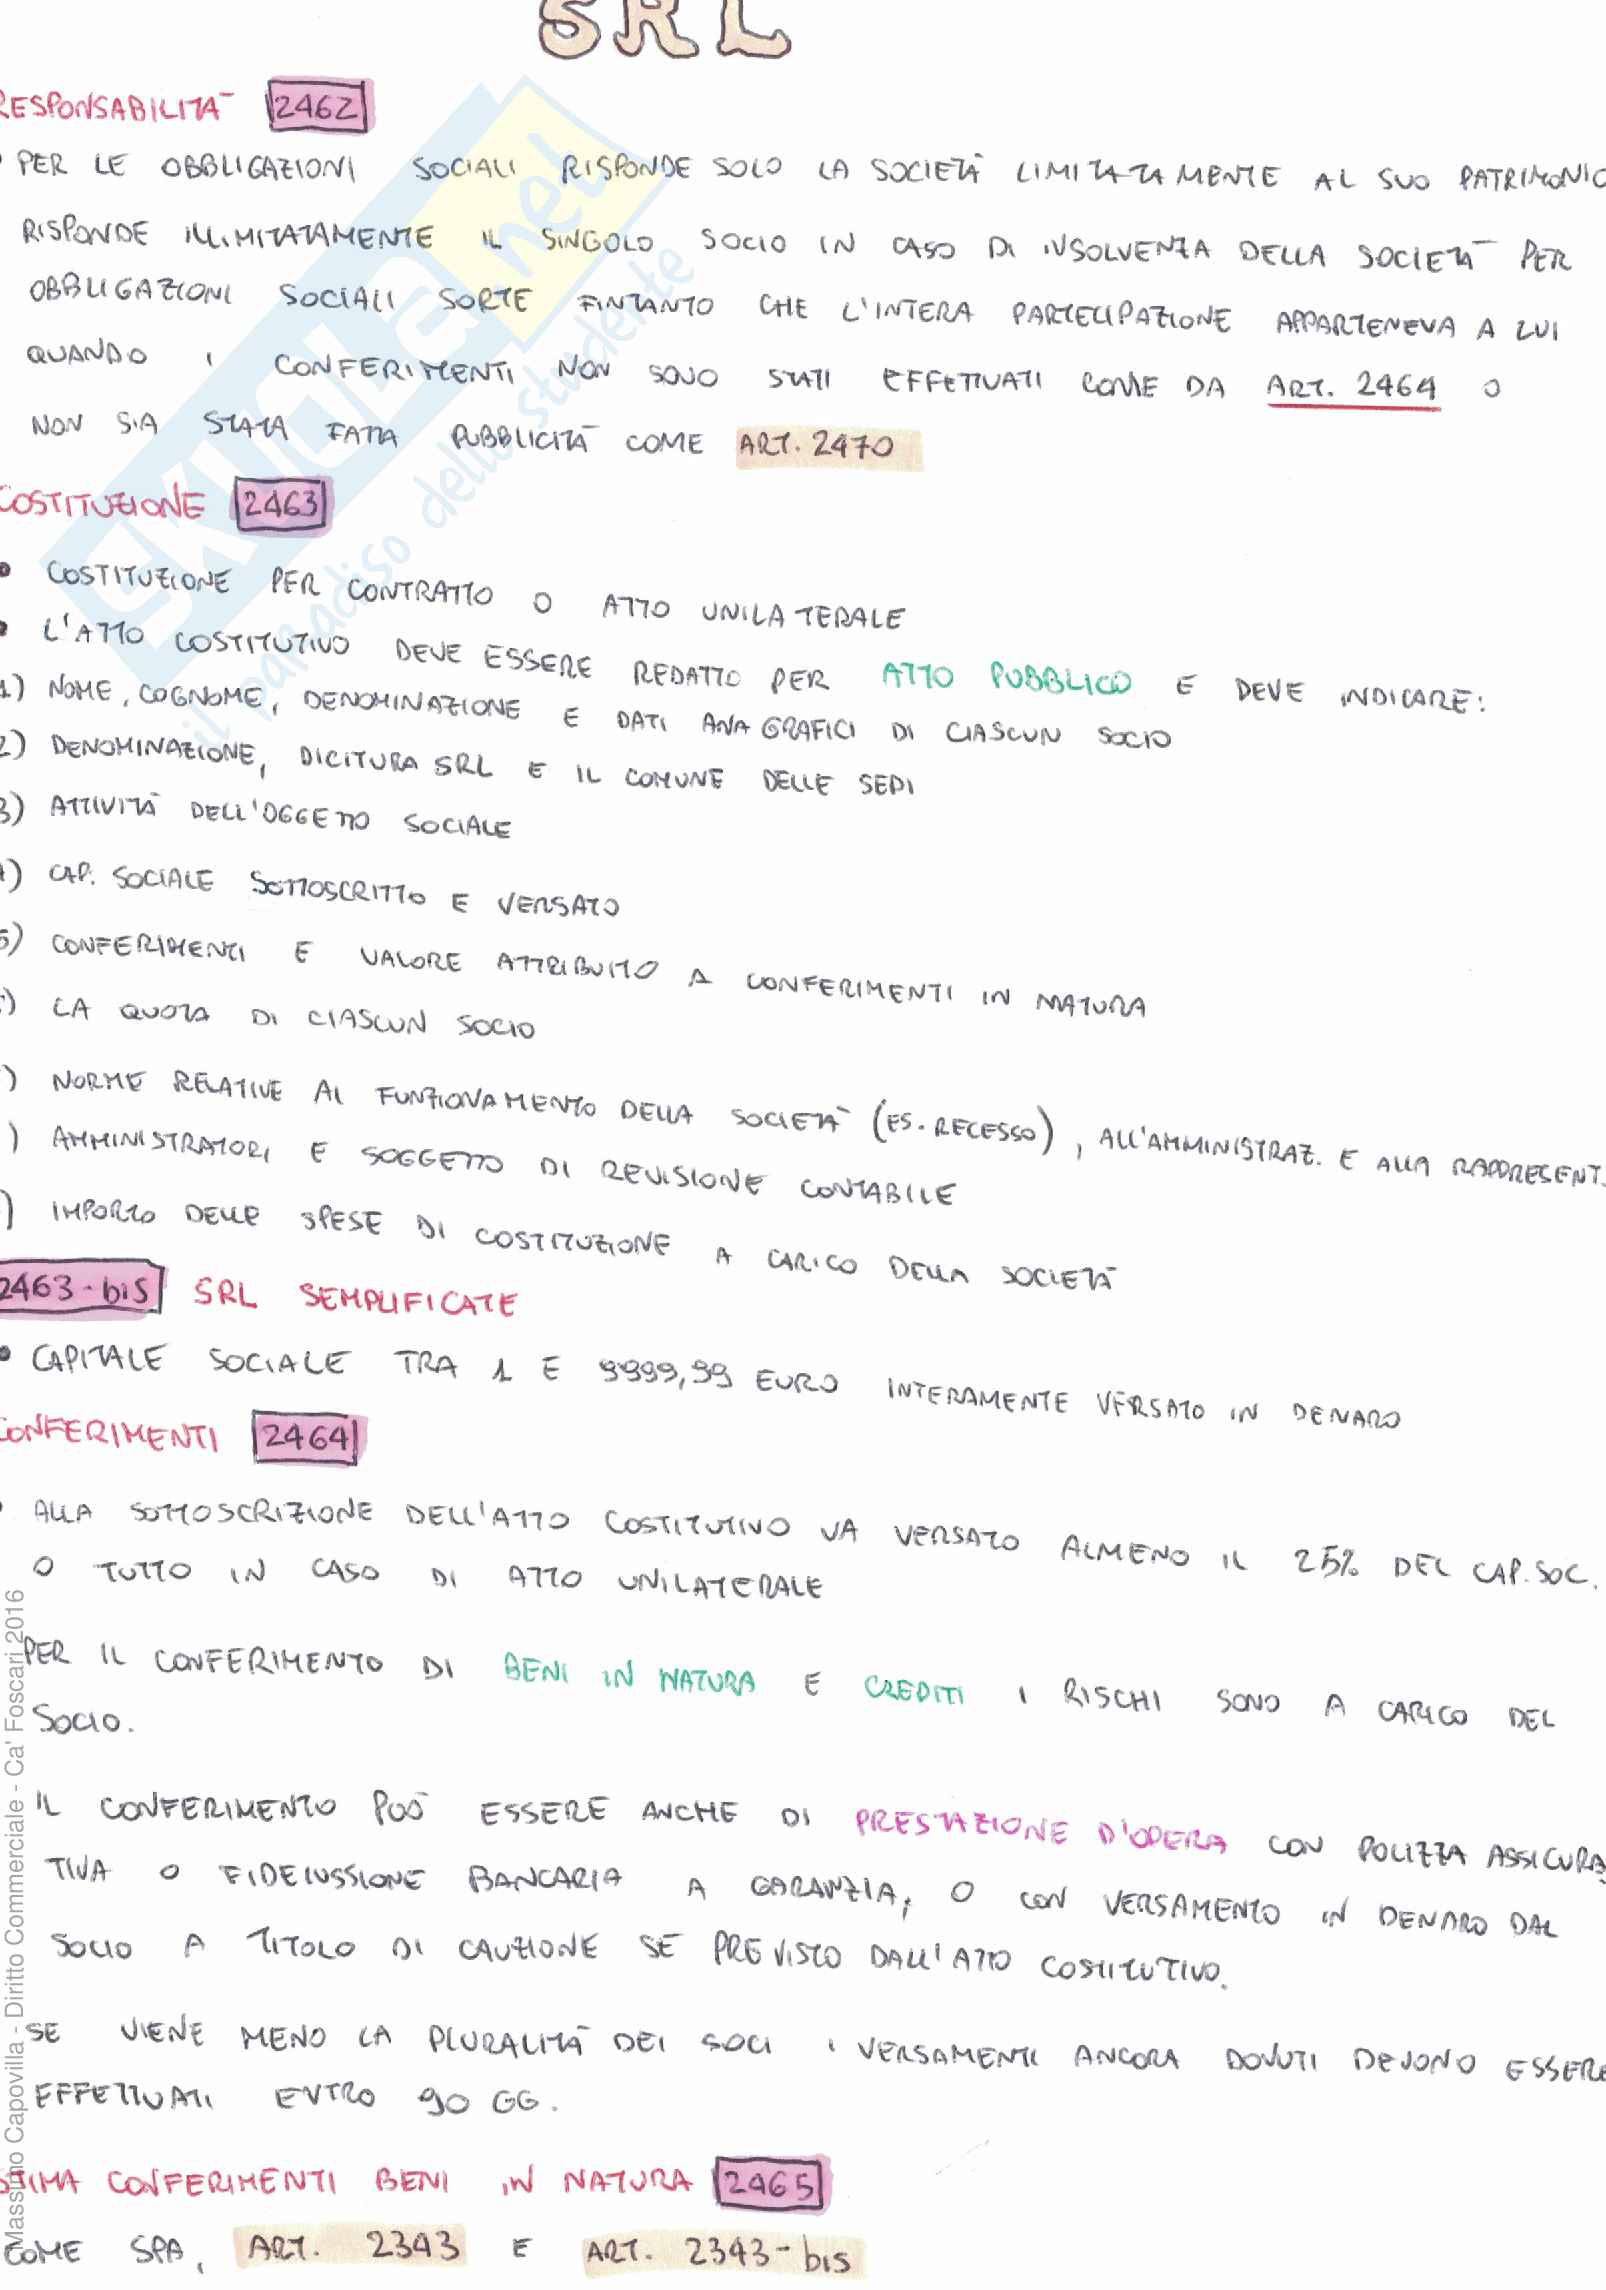 SRL
RESPONSABILITÀ 2462
PER LE OBBLIGAZIONI SOCIALI RISPONDE SOLO LA SOCIETÀ LIMITATAMENTE AL SUO PATRIMONIO
RISPONDE ILLIMITATAMENTE IL SINGOLO SOCIO IN CASO DI INSOLVENZA DELLA SOCIETÀ PER
OBBLIGAZIONI SOCIALI SORTE FINTANTO CHE L'INTERA PARTECIPAZIONE APPARTENEVA A LUI
QUANDO I CONFERIMENTI NON SONO STATI EFFETTUATI COME DA ART. 2464 O
NON SIA STATA FATTA PUBBLICITÀ COME ART. 2470
COSTITUZIONE 2463
• COSTITUZIONE PER CONTRATTO O ATTO UNILATERALE
• L'ATTO COSTITUTIVO DEVE ESSERE REDATTO PER ATTO PUBBLICO E DEVE INDICARE:
1) NOME, COGNOME, DENOMINAZIONE E DATI ANAGRAFICI DI CIASCUN SOCIO
2) DENOMINAZIONE, DICITURA SRL E IL COMUNE DELLE SEDI
3) ATTIVITÀ DELL'OGGETTO SOCIALE
4) CAP. SOCIALE SOTTOSCRITTO E VERSATO
5) CONFERIMENTI E VALORE ATTRIBUITO A CONFERIMENTI IN NATURA
) LA QUOTA DI CIASCUN SOCIO
) NORME RELATIVE AL FUNZIONAMENTO DELLA SOCIETÀ (ES. RECESSO), ALL'AMMINISTRAZ. E ALLA RAPPRESENT.
) AMMINISTRATORI E SOGGETTO DI REVISIONE CONTABILE
) IMPORTO DELLE SPESE DI COSTITUZIONE A CARICO DELLA SOCIETÀ
2463-bis SRL SEMPLIFICATE
• CAPITALE SOCIALE TRA 1 E 9999,99 EURO INTERAMENTE VERSATO IN DENARO
CONFERIMENTI 2464
ALLA SOTTOSCRIZIONE DELL'ATTO COSTITUTIVO VA VERSATO ALMENO IL 25% DEL CAP. SOC.
O TUTTO IN CASO DI ATTO UNILATERALE
PER IL CONFERIMENTO DI BENI IN NATURA E CREDITI I RISCHI SONO A CARICO DEL
SOCIO.
IL CONFERIMENTO PUÒ ESSERE ANCHE DI PRESTAZIONE D'OPERA CON POLIZZA ASSICURA
TIVA O FIDEIUSSIONE BANCARIA A GARANZIA, O CON VERSAMENTO IN DENARO DAL
SOCIO A TITOLO DI CAUZIONE SE PREVISTO DALL'ATTO COSTITUTIVO.
SE VIENE MENO LA PLURALITÀ DEI SOCI I VERSAMENTI ANCORA DOVUTI DEVONO ESSERE
EFFETTUATI ENTRO 90 GG.
STIMA CONFERIMENTI BENI IN NATURA 2465
COME SPA, ART. 2343 E ART. 2343-bis
SKUOLA.net
il paradiso dello studente
Massimo Capovilla - Diritto Commerciale - Ca' Foscari 2016